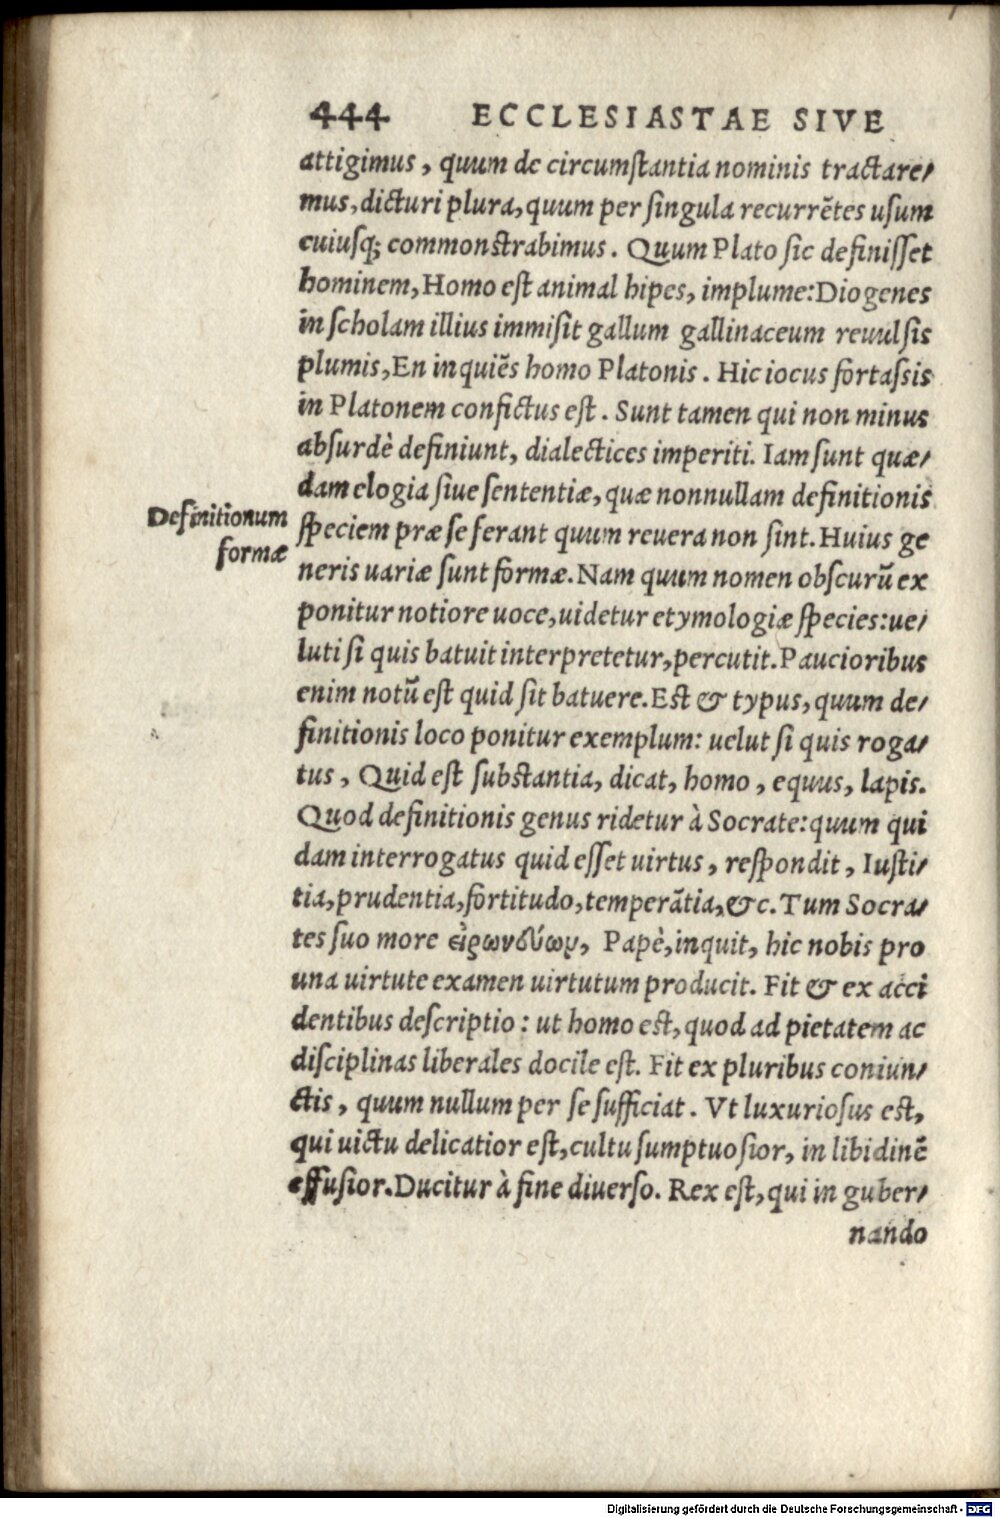 444 ECCLESIASTAE SIVE
attigimus, quum de circumſtantia nominis tractare/
mus, dicturi plura, quum per ſingula recurrẽtes uſum
cuiuſq; commonſtrabimus. Quum Plato ſic definiſſet
hominem, Homo eſt animal bipes, implume: Diogenes
in ſcholam illius immiſit gallum gallinaceum reuulſis
plumis, En inquiẽs homo Platonis. Hic iocus fortaſsis
in Platonem confictus eſt. Sunt tamen qui non minus
abſurdè definiunt, dialectices imperiti. Iam ſunt quæ/
dam elogia ſiue ſententiæ, quæ nonnullam definitionis
Definitionum
formæ
ſpeciem præ ſe ferant quum reuera non ſint. Huius ge
neris uariæ ſunt formæ. Nam quum nomen obſcurũ ex
ponitur notiore uoce, uidetur etymologiæ ſpecies: ue/
luti ſi quis batuit interpretetur, percutit. Paucioribus
enim notũ eſt quid ſit batuere. Eſt & typus, quum de/
finitionis loco ponitur exemplum: uelut ſi quis roga/
tus, Quid eſt ſubſtantia, dicat, homo, equus, lapis.
Quod definitionis genus ridetur à Socrate: quum qui
dam interrogatus quid eſſet uirtus, reſpondit, Iuſti/
tia, prudentia, fortitudo, temperãtia, &c. Tum Socra/
tes ſuo more εἰρωνεύων, Papè, inquit, hic nobis pro
una uirtute examen uirtutum producit. Fit & ex acci
dentibus deſcriptio: ut homo eſt, quod ad pietatem ac
diſciplinas liberales docile eſt. Fit ex pluribus coniun/
ctis, quum nullum per ſe ſufficiat. Vt luxurioſus eſt,
qui uictu delicatior eſt, cultu ſumptuoſior, in libidinẽ
effuſior. Ducitur à fine diuerſo. Rex eſt, qui in guber/
nando
Digitalisierung gefördert durch die Deutsche Forschungsgemeinschaft - DFG